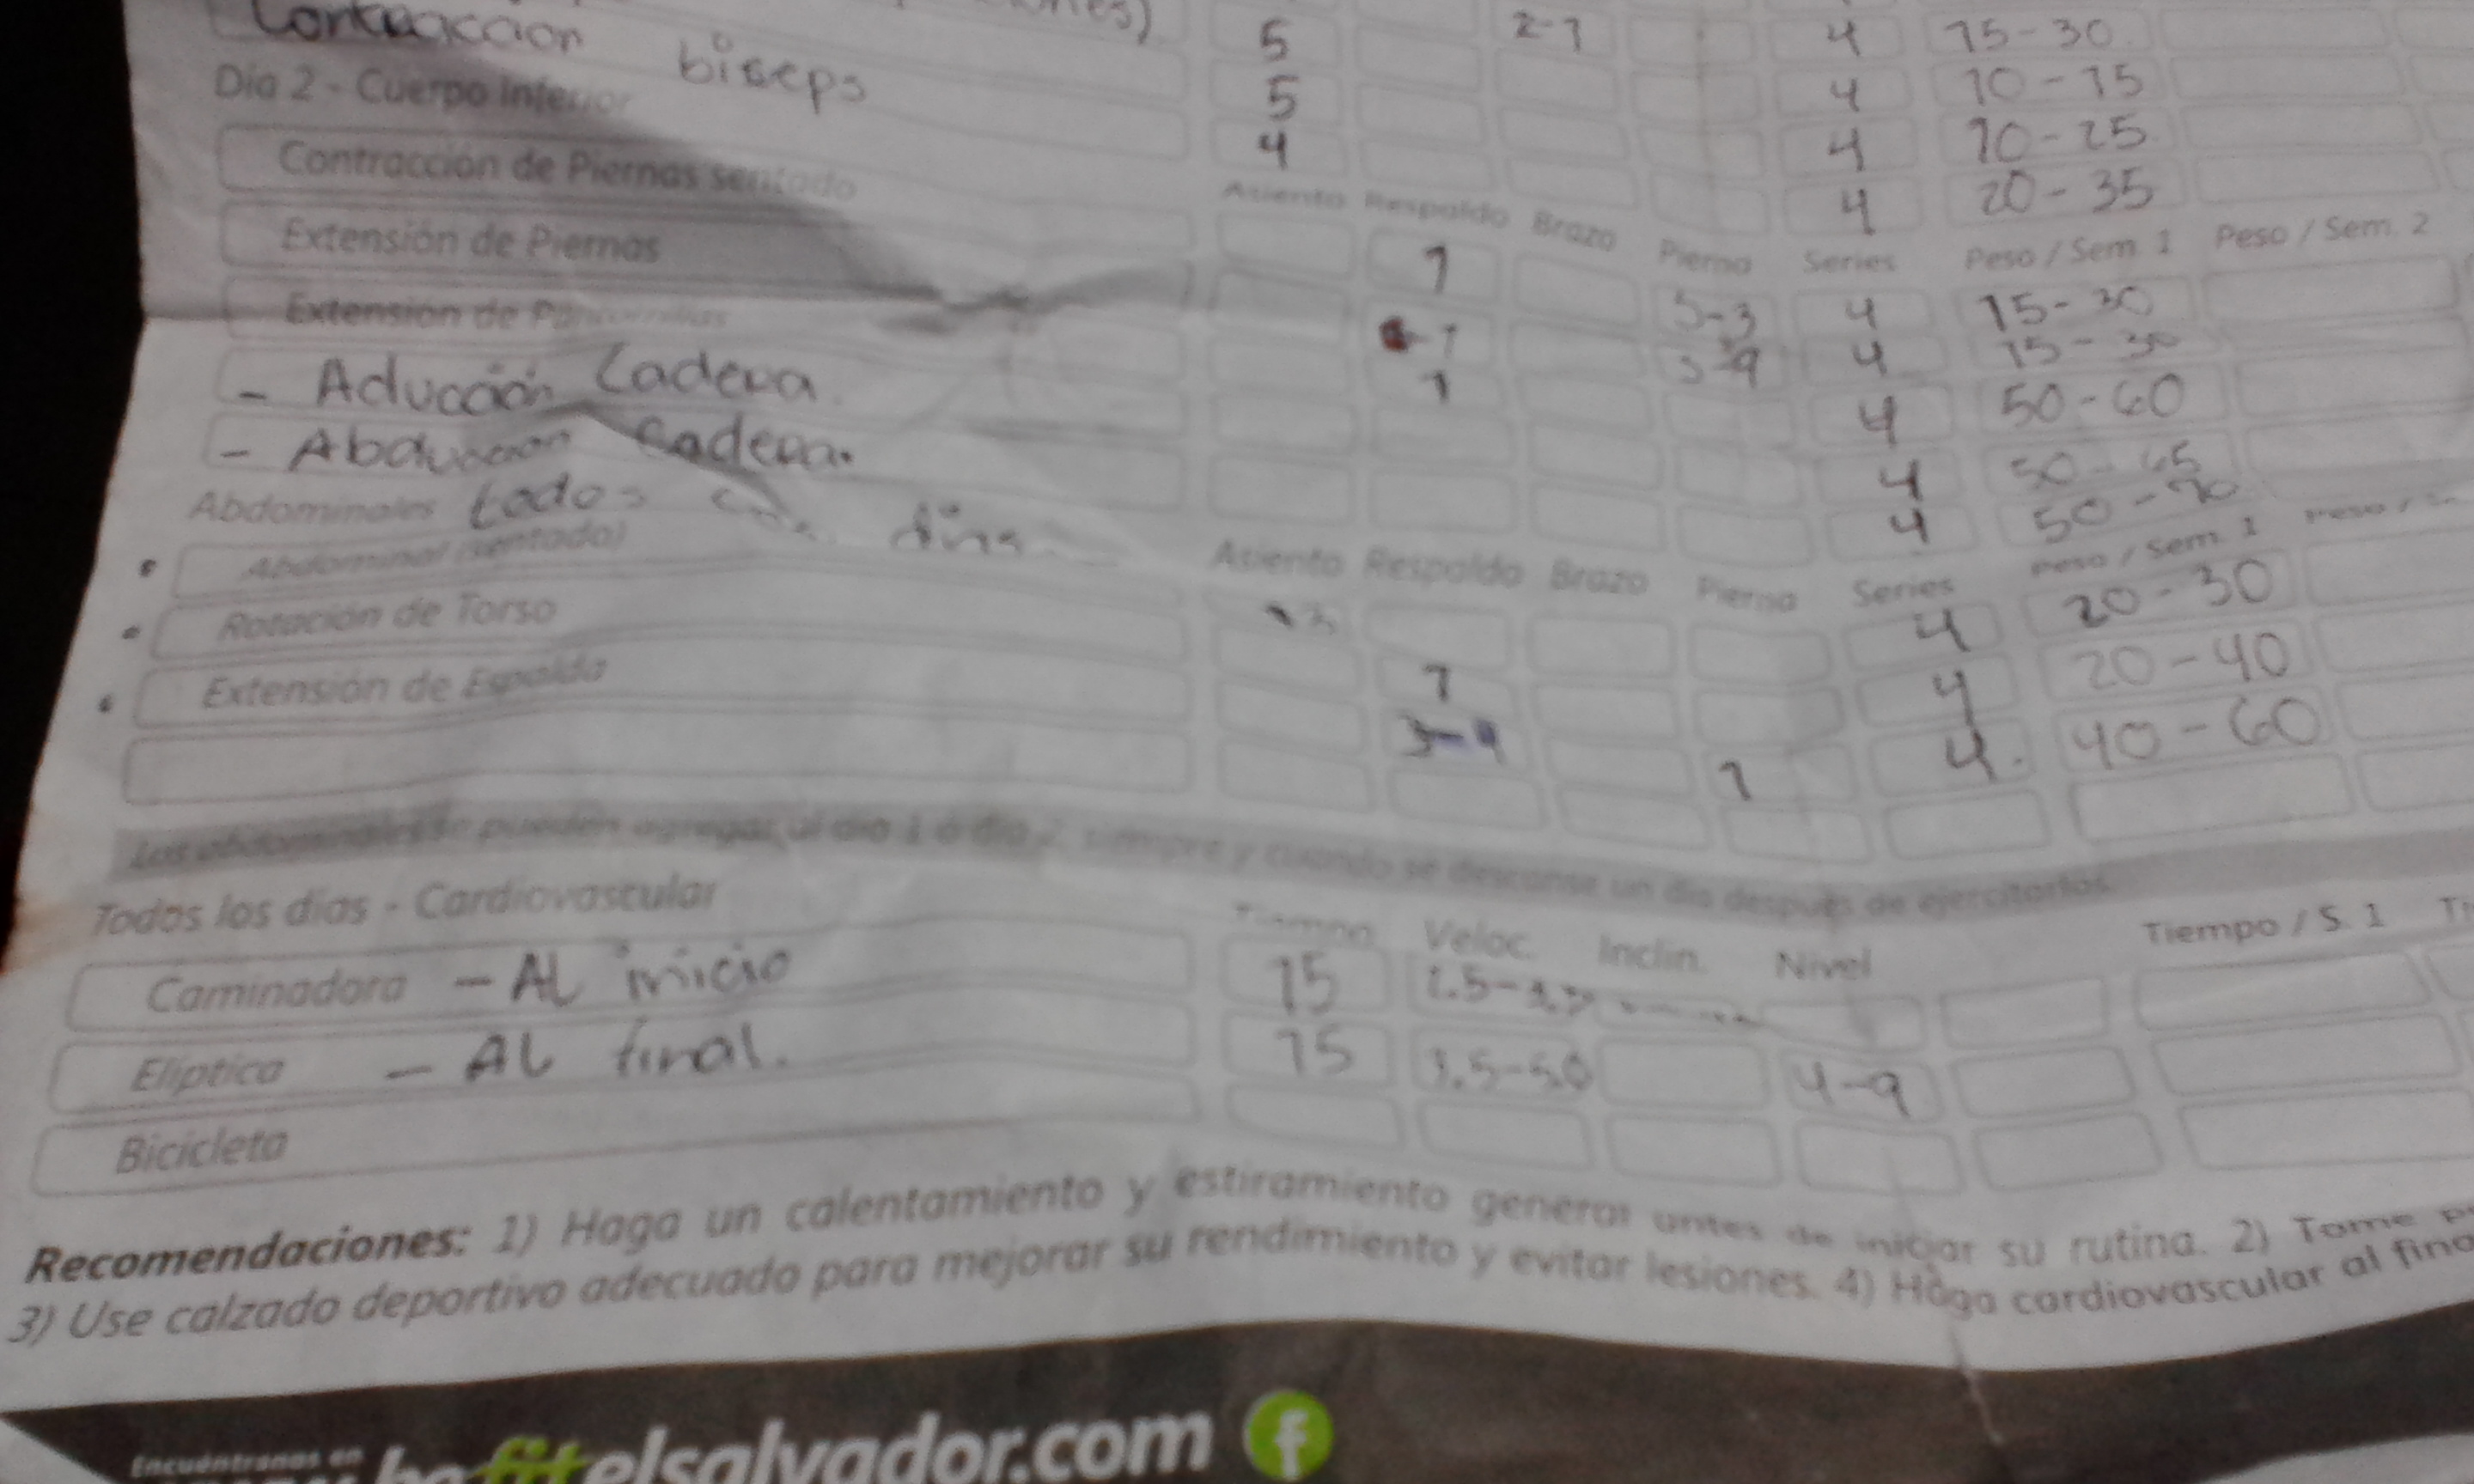 5 2-1 4 15-30
Contraccion biseps 5 4 10-15
4 4 10-25
4 20-35
Día 2 - Cuerpo Inferior Asiento Respaldo Brazo Pierna Series Peso / Sem. 1 Peso / Sem. 2
Contracción de Piernas sentado 1 5-3 4 15-30
Extensión de Piernas 1 3-9 4 15-30
Extensión de Pantorrillas 1 4 50-60
- Aducción Cadera 4 50-65
- Abduccion Cadera. 4 50-70
Abdominales todos días Asiento Respaldo Brazo Pierna Series Peso / Sem. 1
• Abdominal (sentado) 3 4 20-30
• Rotación de Torso 1 4 20-40
• Extensión de Espalda 3-4 1 4. 40-60
Los abdominales se pueden agregar al día 1 ó día 2, siempre y cuando se descanse un día después de ejercitarlos.
Todos los días - Cardiovascular Tiempo Veloc. Inclin. Nivel Tiempo / S. 1
Caminadora - AL inicio 15
Elíptica - AL final. 15 4-9
Bicicleta
Recomendaciones: 1) Haga un calentamiento y estiramiento general antes de iniciar su rutina. 2) Tome
3) Use calzado deportivo adecuado para mejorar su rendimiento y evitar lesiones. 4) Haga cardiovascular al
Encuéntranos en
befitelsalvador.com f